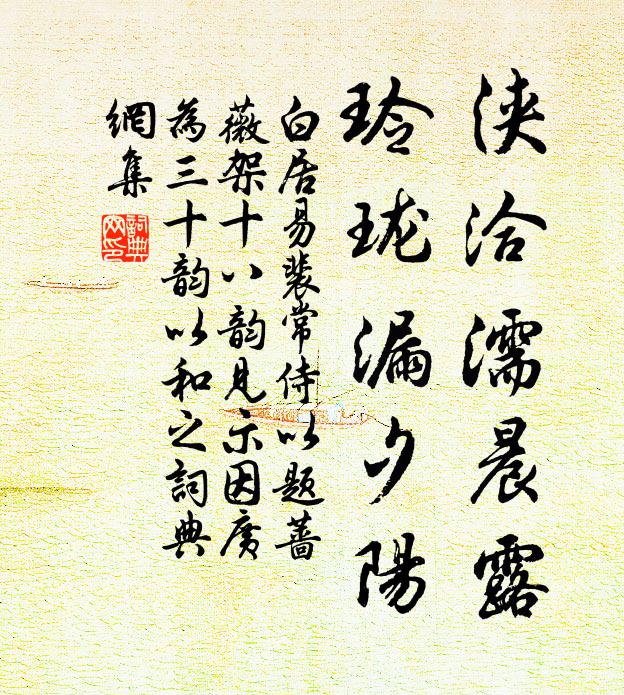 浹洽濡晨露
玲珑漏夕陽
白居易裴常侍以题蔷
薇架十八韵見示因廣
為三十韵以和之詞典
網集
詞典
网印